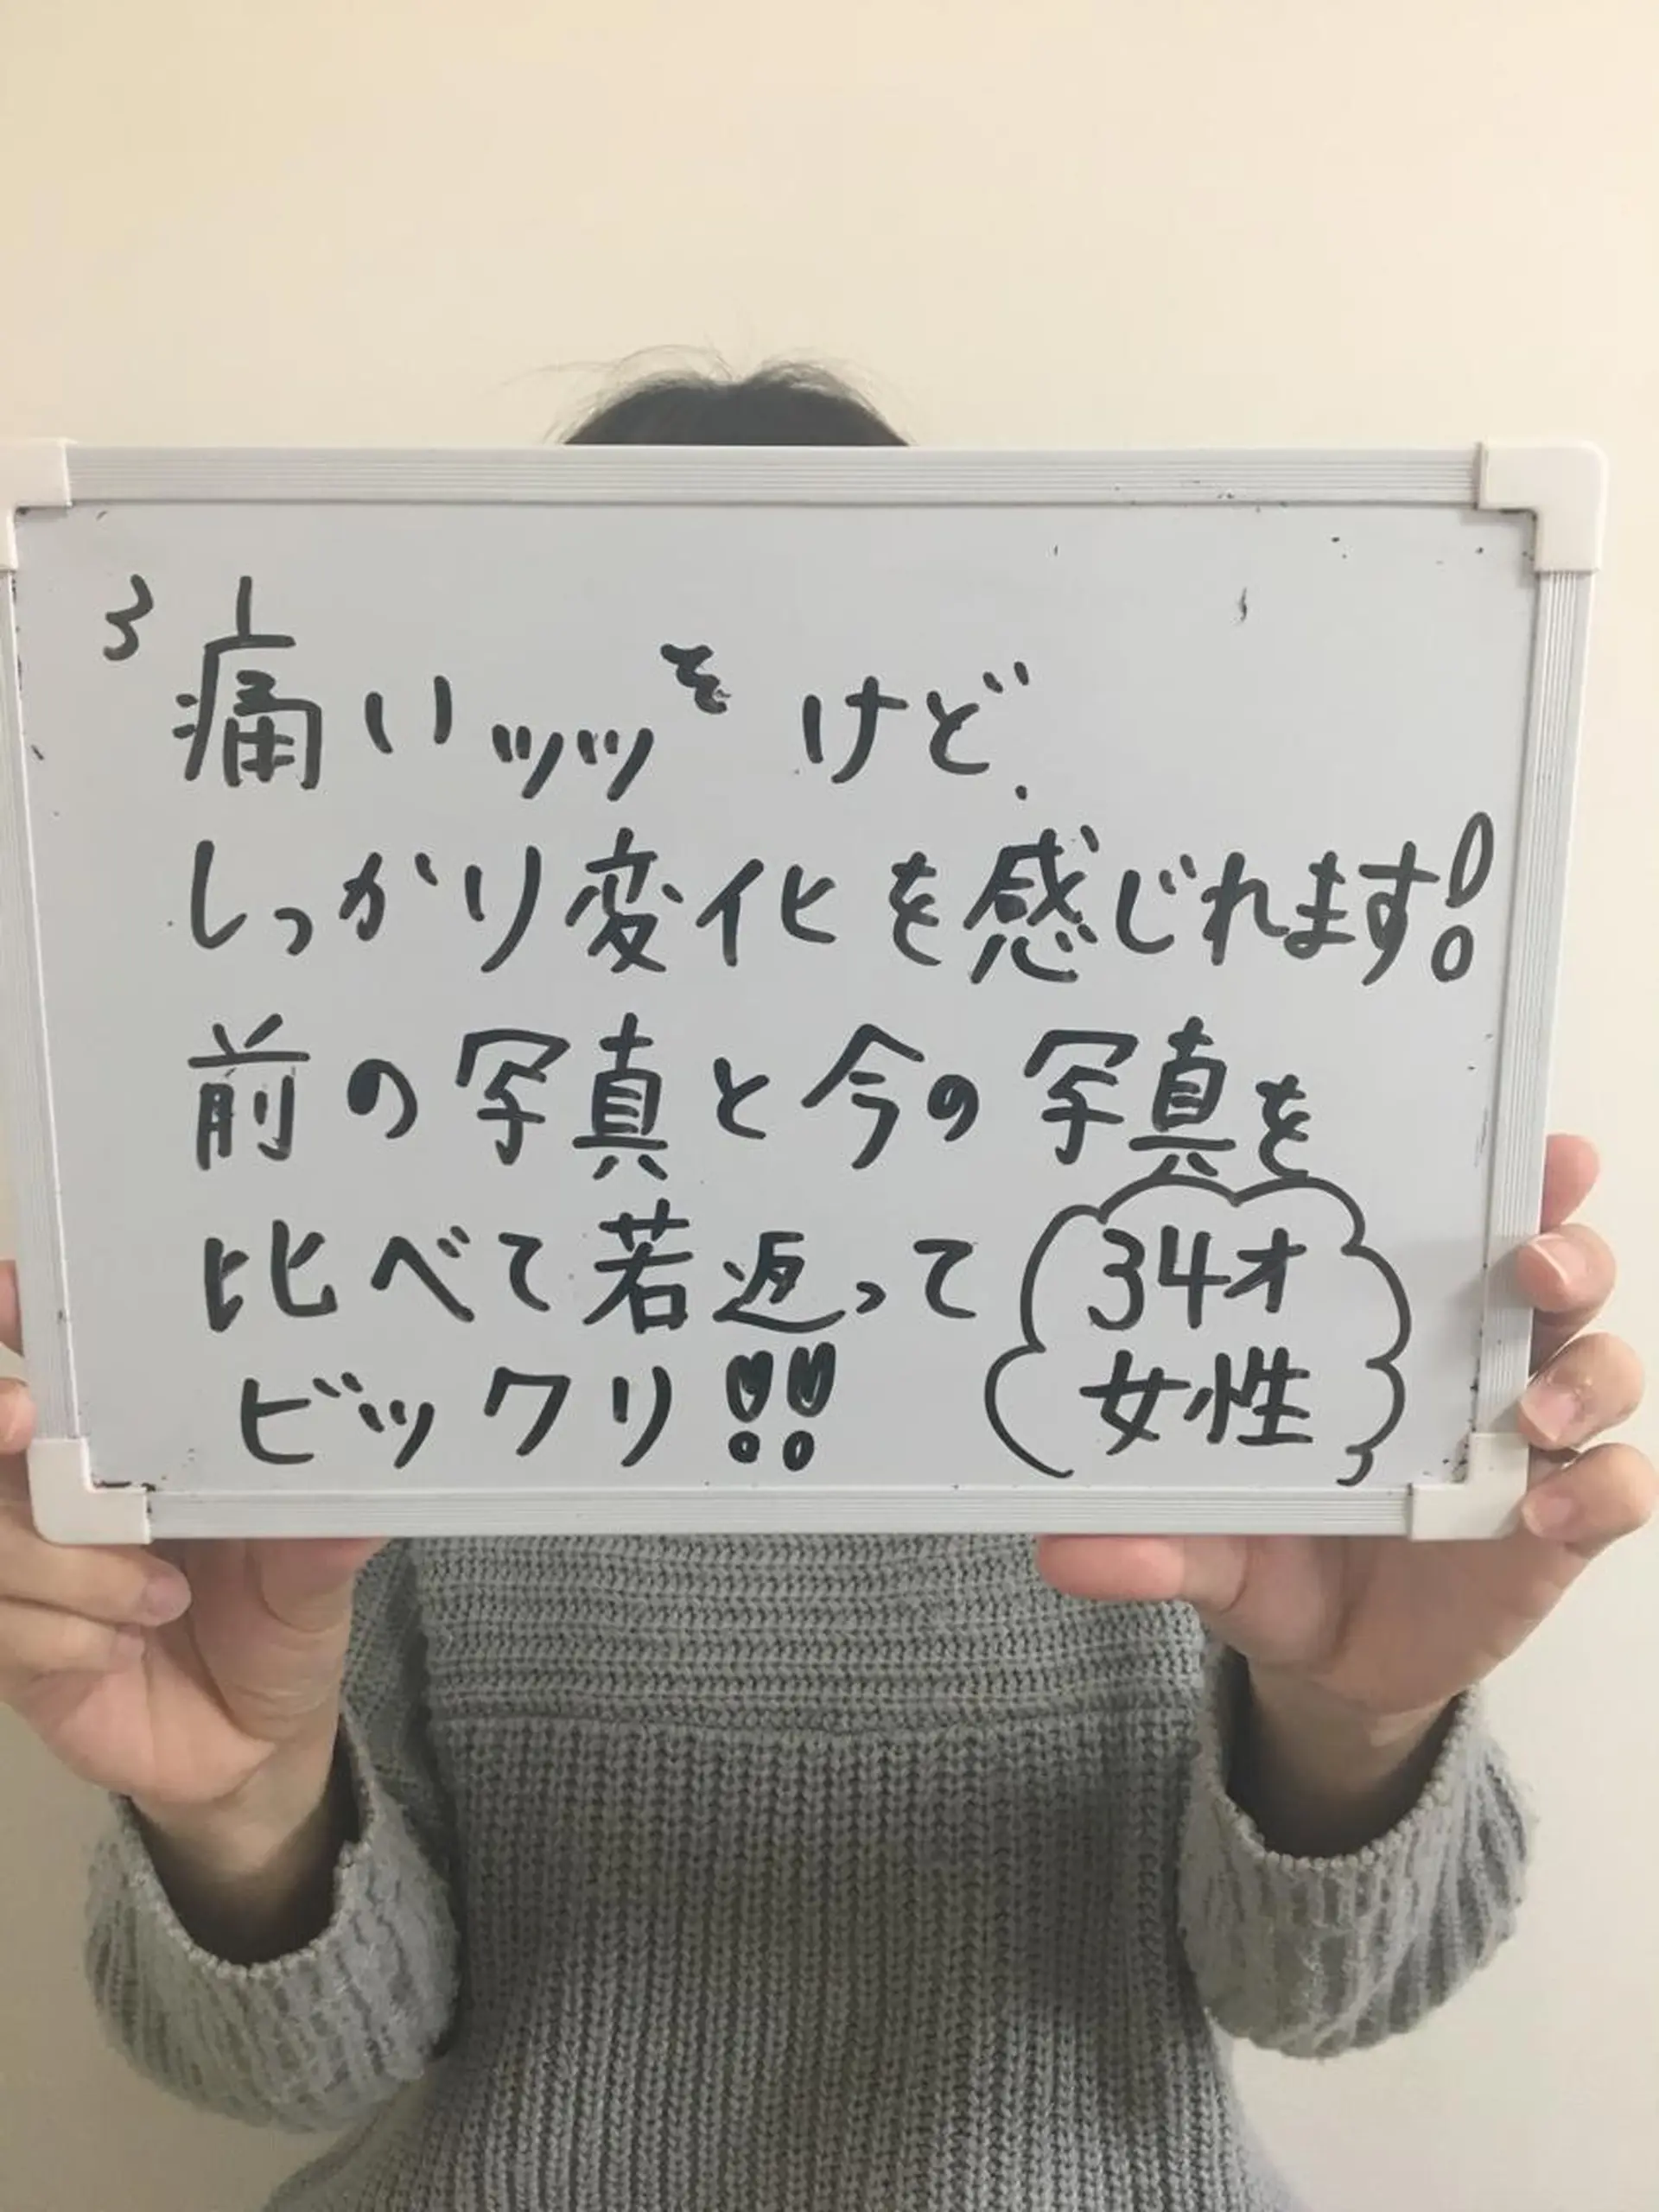 痛いッッ けど.
しっかり変化を感じれます!
前の写真と今の写真を
比べて若返って
ビックリ!!
34才
女性